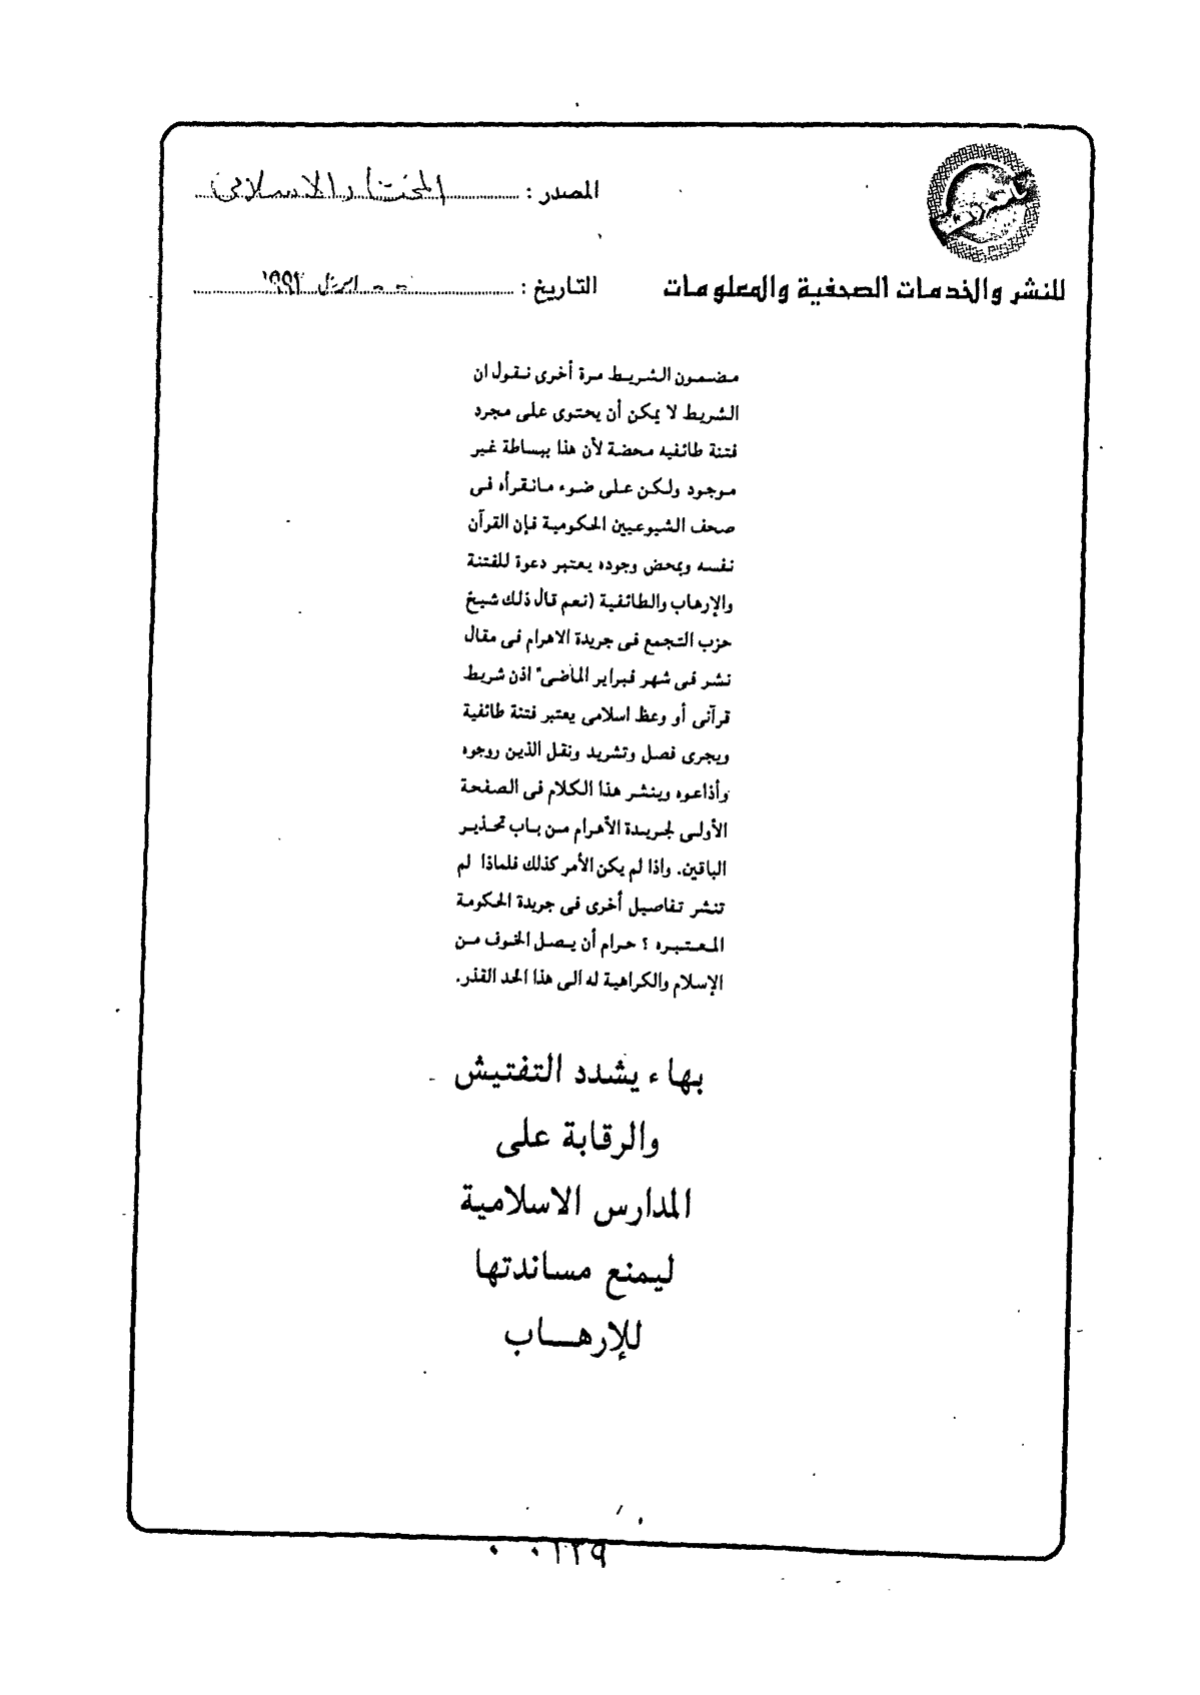 المصدر : المختار الاسلامى
للنشر والخدمات الصحفية والمعلومات
التاريخ : -- ابريل ١٩٩٢
مضمون الشريط مرة أخرى نقول ان
الشريط لا يمكن أن يحتوى على مجرد
فتنة طائفيه محضة لأن هذا ببساطة غير
موجود ولكن على ضوء مانقرأه فى
صحف الشيوعيين الحكومية فإن القرآن
نفسه وبمحض وجوده يعتبر دعوة للفتنة
والإرهاب والطائفية (نعم قال ذلك شيخ
حزب التجمع فى جريدة الاهرام فى مقال
نشر فى شهر فبراير الماضى" اذن شريط
قرآنى أو وعظ اسلامى يعتبر فتنة طائفية
ويجرى فصل وتشريد ونقل الذين روجوه
وأذاعوه وينشر هذا الكلام فى الصفحة
الأولى لجريدة الأهرام من باب تحذير
الباقين. واذا لم يكن الأمر كذلك فلماذا لم
تنشر تفاصيل أخرى فى جريدة الحكومة
المعتبره ؟ حرام أن يصل الخوف من
الإسلام والكراهية له الى هذا الحد القذر.
بهاء يشدد التفتيش
والرقابة على
المدارس الاسلامية
ليمنع مساندتها
للإرهـــاب